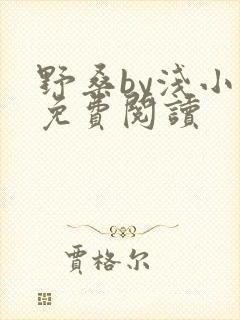 野桑by淺小
免費閱讀
賈格尔